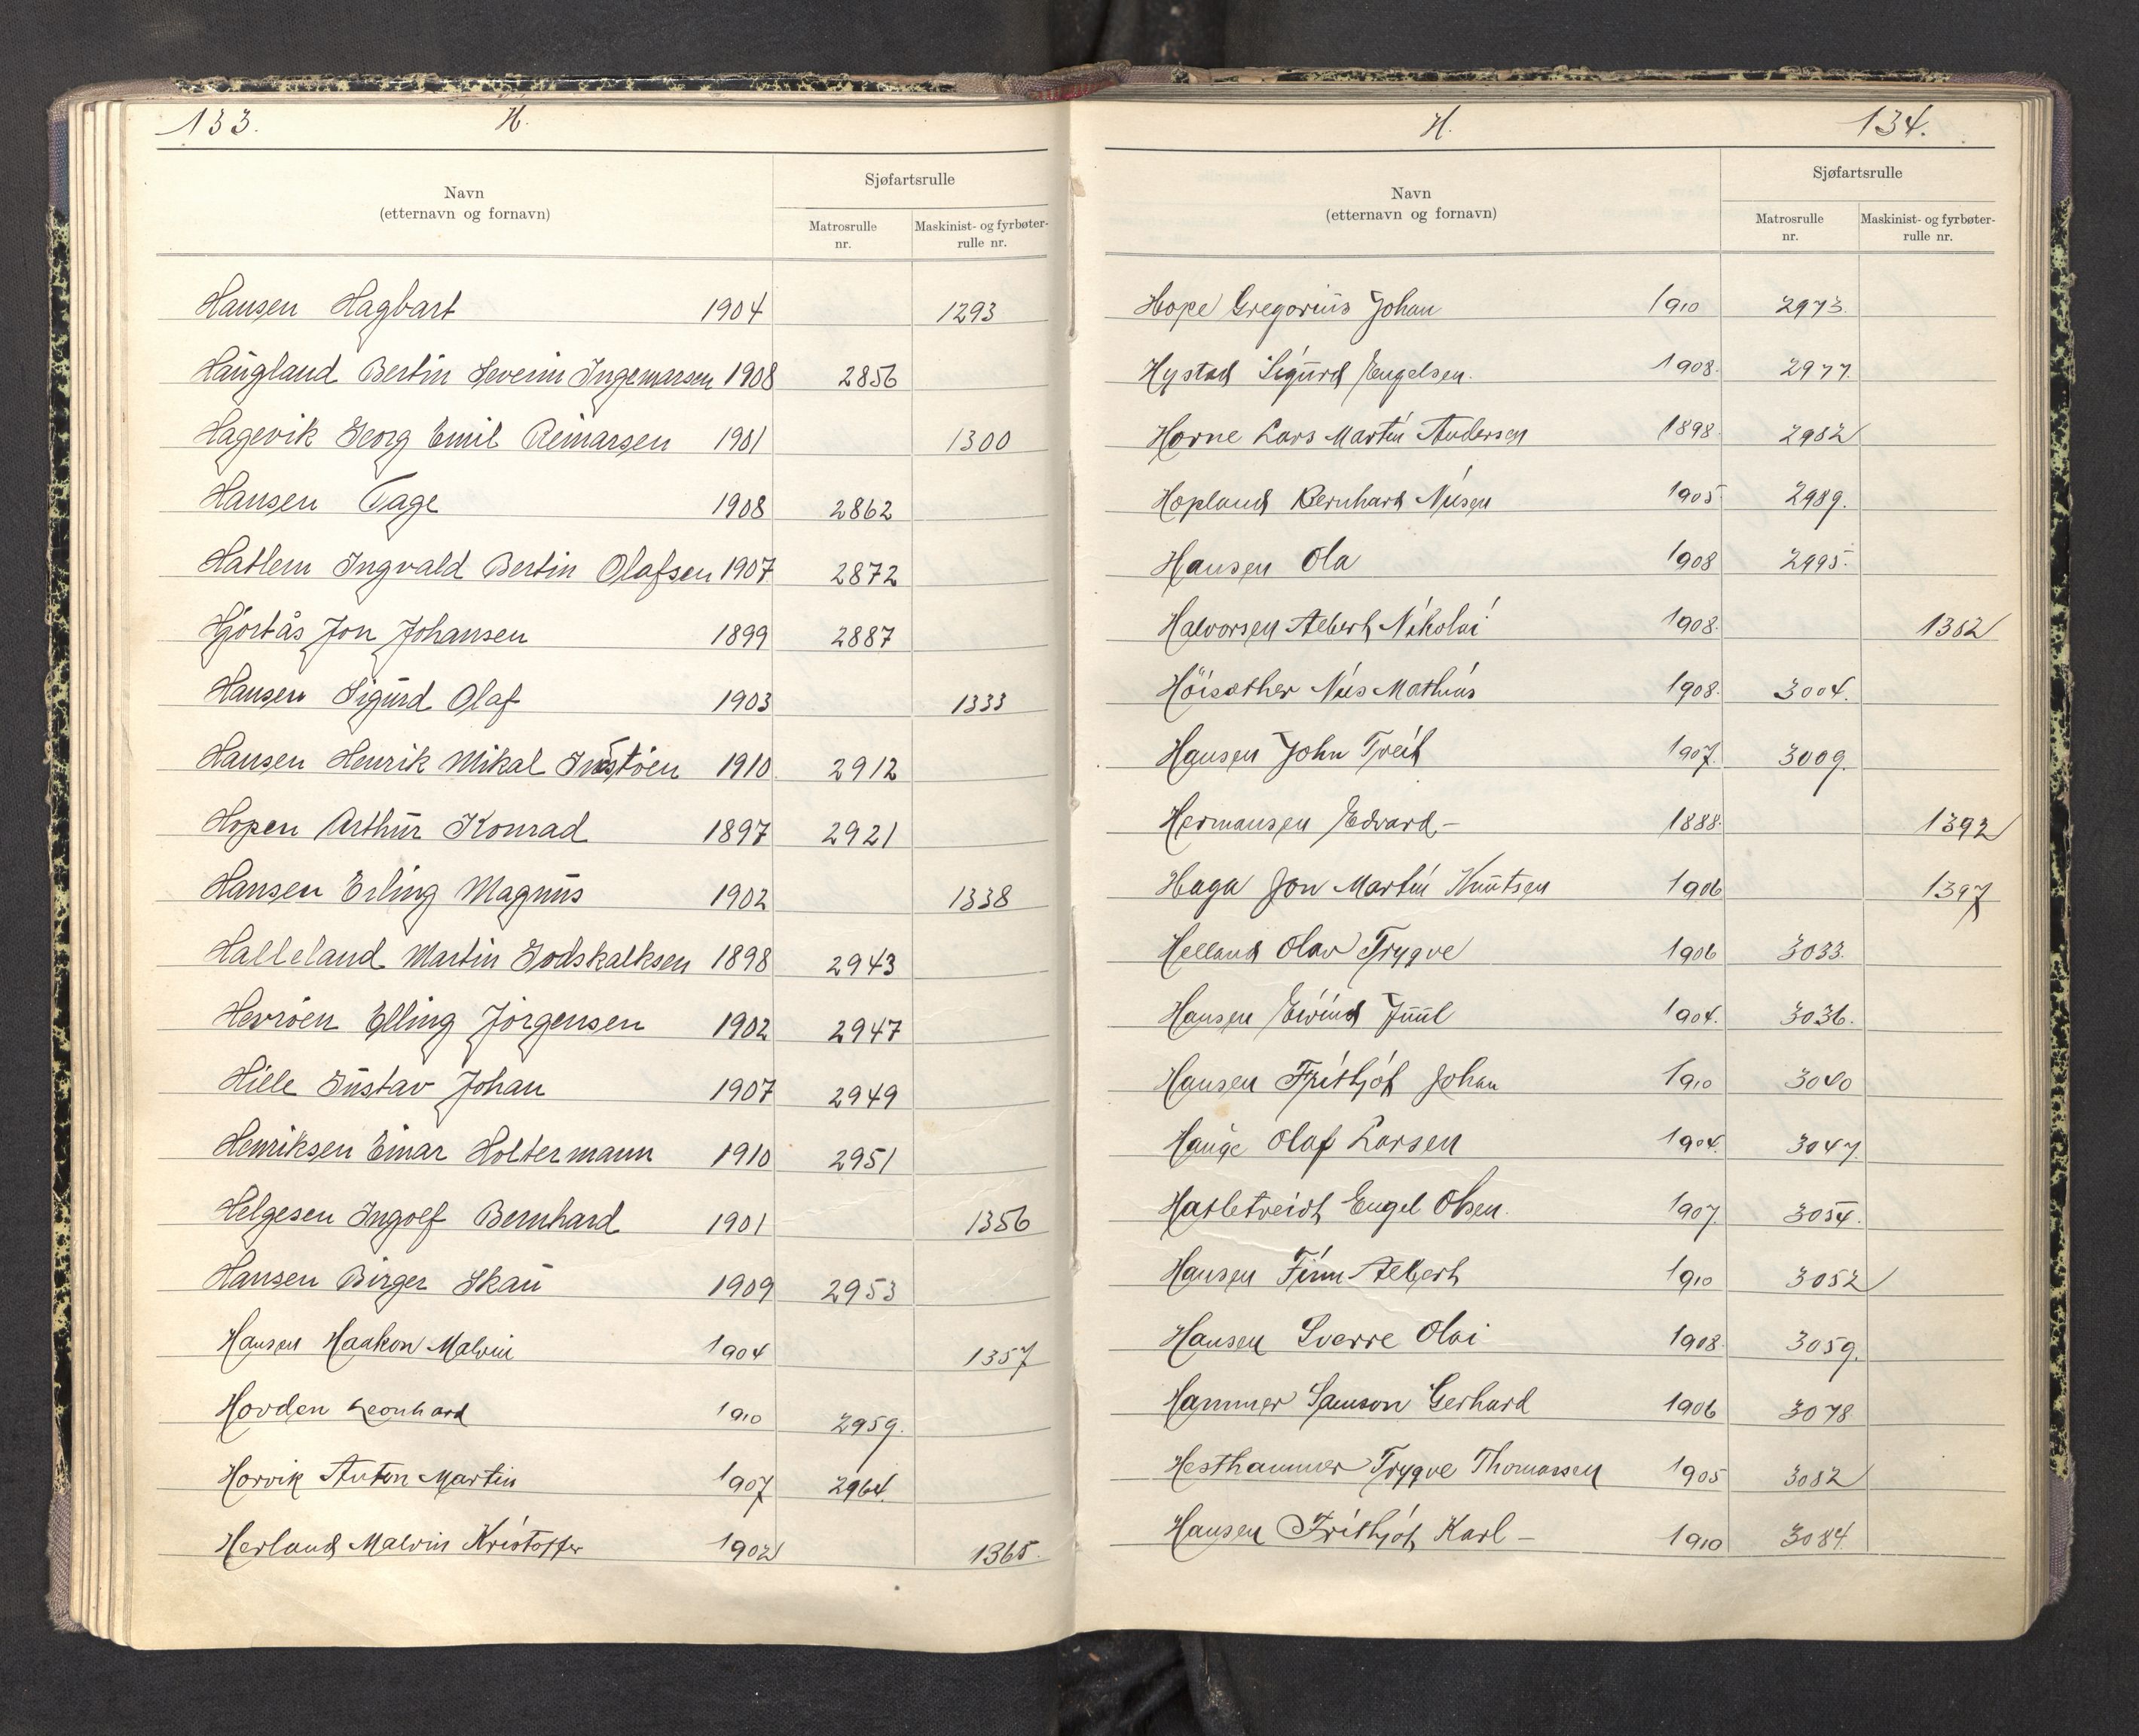 133. H.
Navn
(etternavn og fornavn)
Sjøfartsrulle
Matrosrulle
nr.
Maskinist- og fyrbøter-
rulle nr.
Hansen Hagbart 1904 1293
Haugland Bertin Severin Ingemarsen 1908 2856
Hagevik Georg Emil Reinarsen 1901 1300
Hansen Tage 1908 2862
Hatlem Ingvald Bertin Olafsen 1907 2872
Hjörtås Jon Johansen 1899 2887
Hansen Sigurd Olaf 1903 1333
Hansen Henrik Mikal 1910 2912
Hopen Arthur Konrad 1897 2921
Hansen Erling Magnus 1902 1338
Halleland Martin Godskalksen 1898 2943
Hevröen Elling Jörgensen 1902 2947
Hille Gustav Johan 1907 2949
Henriksen Einar Holtermann 1910 2951
Helgesen Ingolf Bernhard 1901 1356
Hansen Birger Skau 1909 2953
Hansen Haakon Malvin 1904 1357
Hovden Leonhard 1910 2959.
Horvik Anton Martin 1907 2964.
Herland Malvin Kristoffer 1902 1365.
H. 134.
Navn
(etternavn og fornavn)
Sjøfartsrulle
Matrosrulle
nr.
Maskinist- og fyrbøter-
rulle nr.
Hope Gregorius Johan 1910 2973.
Hystad Sigurd Engelsen. 1908. 2977.
Horne Lars Martin Andersen 1898. 2982
Hopland Bernhard Nilsen 1905 2989.
Hansen Ola 1908 2995.
Halvorsen Albert Nikolai 1908. 1382
Höisæther Nils Mathias 1908. 3004.
Hansen John Tveit 1907. 3009.
Hermansen Edvard - 1888. 1392
Haga Jon Martin Knutsen 1906 1397
Helland Olav Trygve 1906 3033.
Hansen Eivind Juul 1904. 3036.
Hansen Fritjof Johan 1910 3040
Hauge Olaf Larsen 1904. 3047.
Hatletveidt Engel Olsen. 1907. 3054.
Hansen Finn Albert 1910 3052
Hansen Sverre Olai 1908. 3059.
Hammer Samson Gerhard 1906 3078
Hesthammer Trygve Thomassen 1905 3082
Hansen Fritjof Karl - 1910 3084.